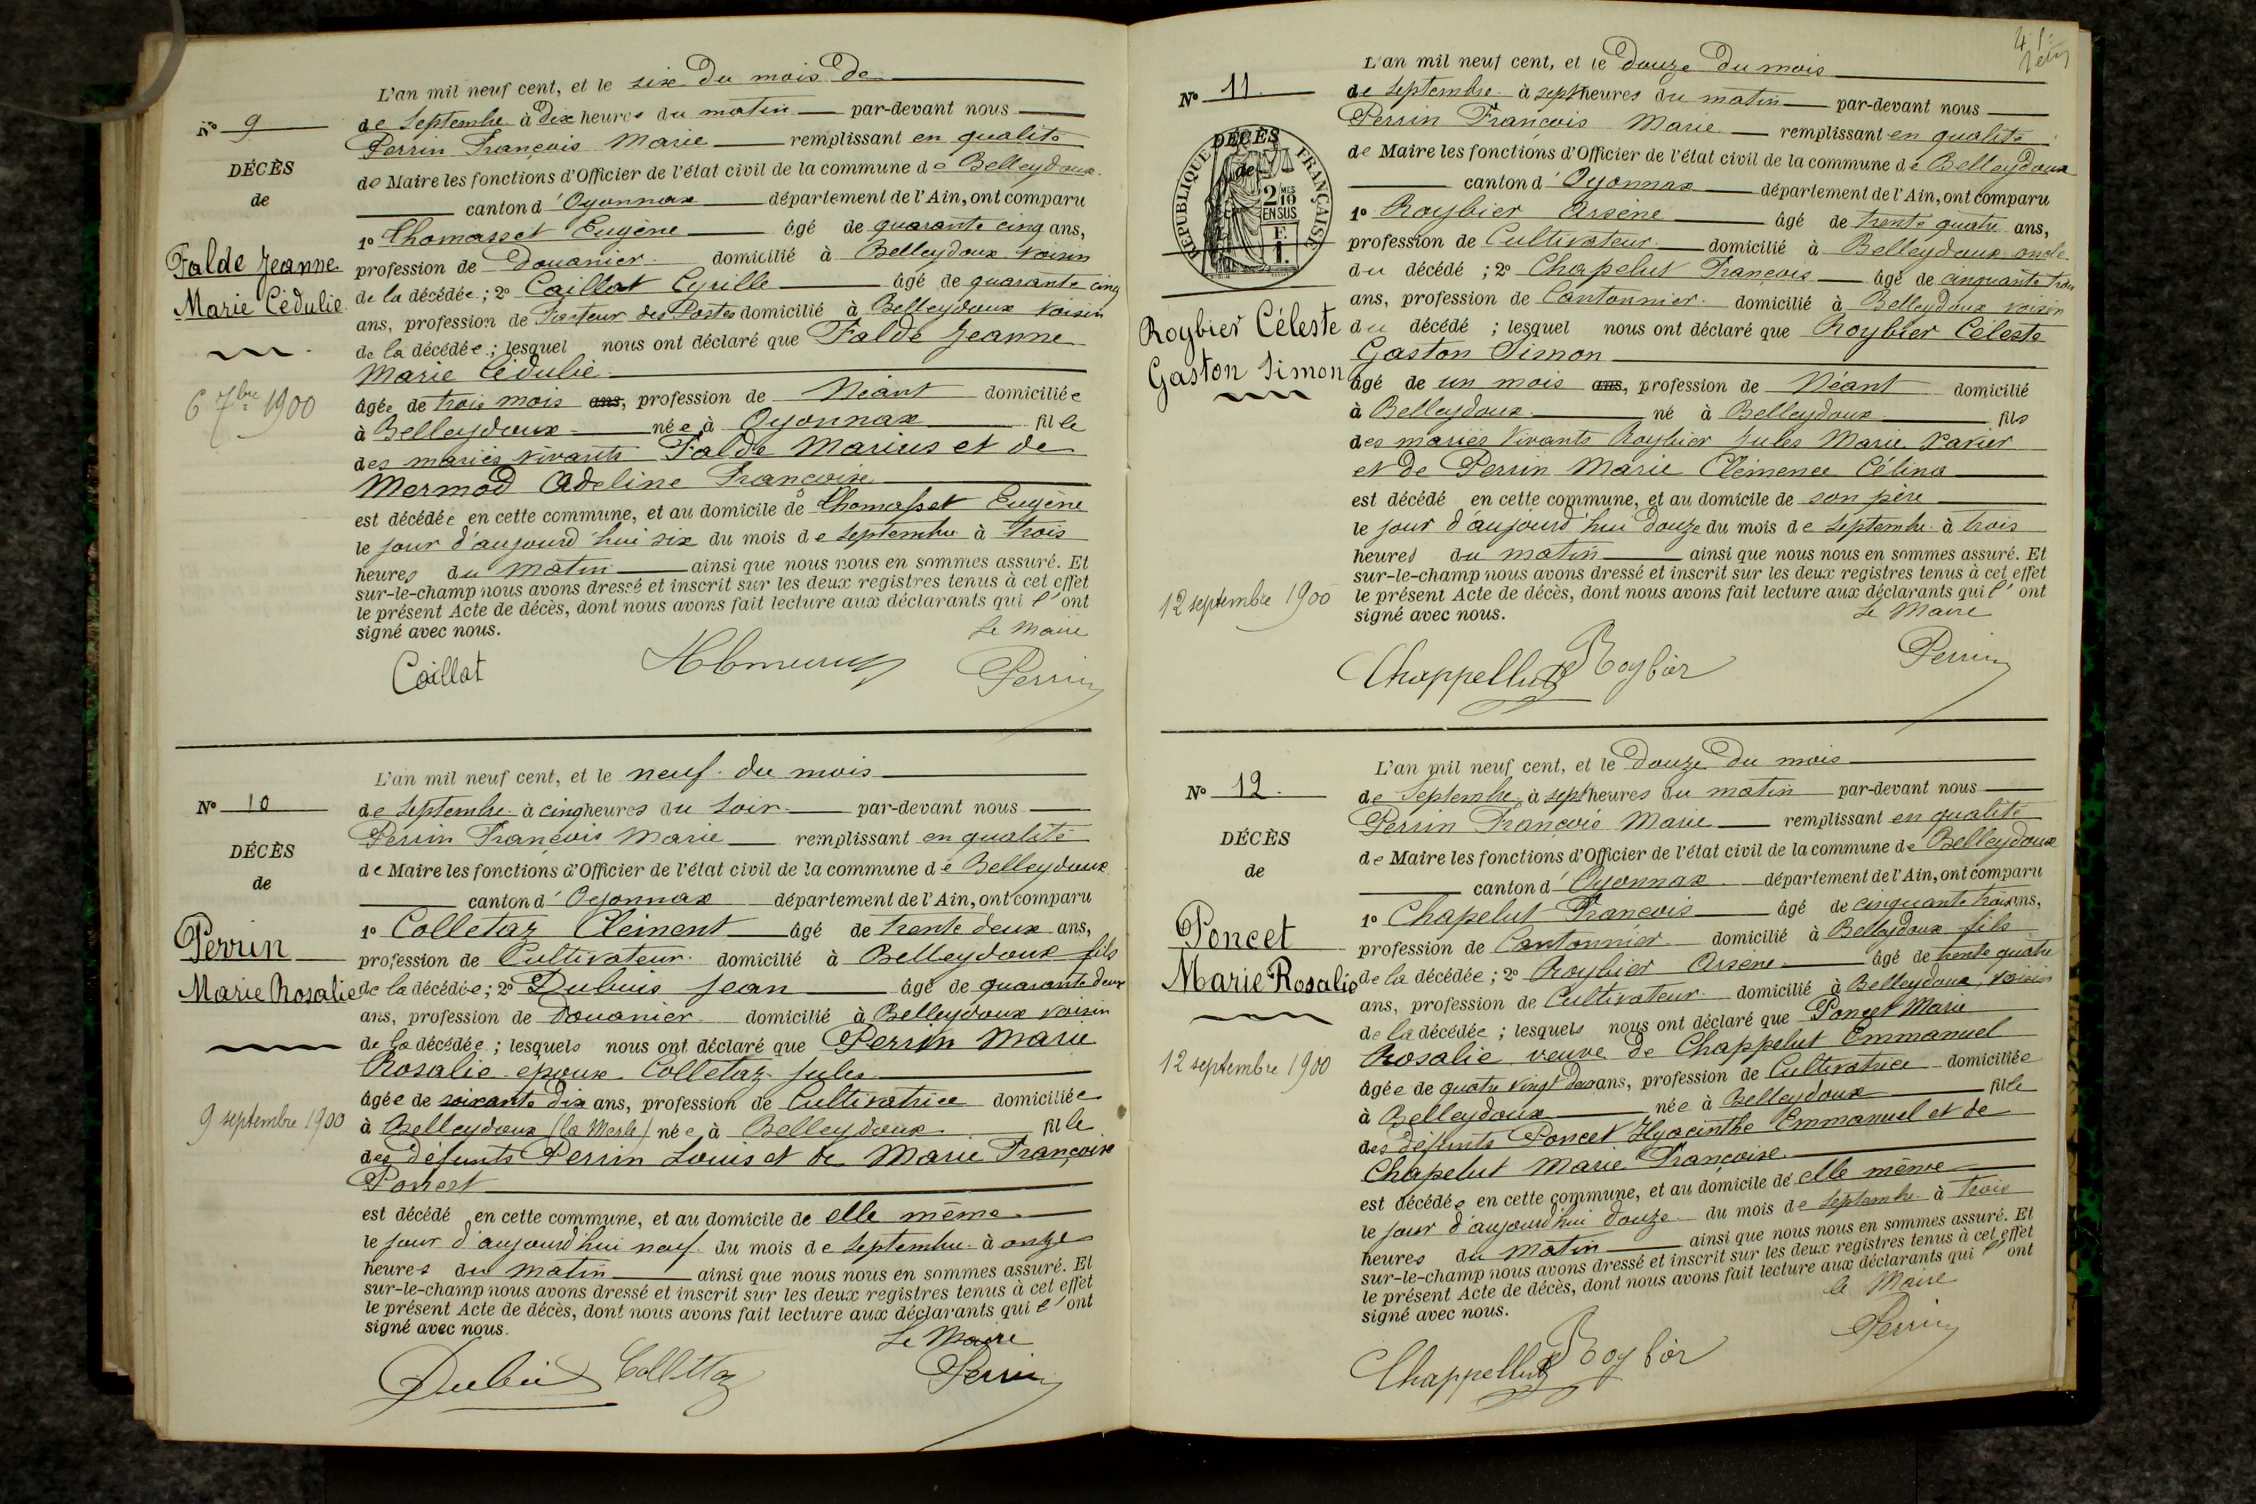 L'an mil neuf cent, et le six du mois de
N° 9
de Septembre à dix heures du matin par-devant nous
Perrin François Marie remplissant en qualité
DÉCÈS
de Maire les fonctions d'Officier de l'état civil de la commune de Belleydoux
de
canton d'Oyonnax département de l'Ain, ont comparu
1° Thomasset Eugène âgé de quarante cinq ans,
Falde Jeanne
profession de Douanier domicilié à Belleydoux voisin
Marie Cédulie
de la décédée; 2° Caillat Cyrille âgé de quarante cinq
ans, profession de Facteur des Postes domicilié à Belleydoux voisin
de la décédée; lesquel nous ont déclaré que Falde Jeanne
Marie Cédulie
6 7bre 1900
âgée de trois mois ans, profession de Néant domiciliée
à Belleydoux née à Oyonnax fille
des mariés vivants Falde Marius et de
Mermod Adeline Françoise
est décédée en cette commune, et au domicile de Thomasset Eugène
le jour d'aujourd'hui six du mois de septembre à trois
heures du matin ainsi que nous nous en sommes assuré. Et
sur-le-champ nous avons dressé et inscrit sur les deux registres tenus à cet effet
le présent Acte de décès, dont nous avons fait lecture aux déclarants qui l'ont
signé avec nous.
Le Maire
Caillat
Perrin
L'an mil neuf cent, et le neuf du mois
N° 10
de Septembre à cinq heures du soir par-devant nous
Perrin François Marie remplissant en qualité
DÉCÈS
de Maire les fonctions d'Officier de l'état civil de la commune de Belleydoux
de
canton d'Oyonnax département de l'Ain, ont comparu
1° Colletaz Clément âgé de trente deux ans,
Perrin
profession de Cultivateur domicilié à Belleydoux fils
Marie Rosalie
de la décédée; 2° Dubuis Jean âgé de quarante deux
ans, profession de Douanier domicilié à Belleydoux voisin
de la décédée; lesquels nous ont déclaré que Perrin Marie
Rosalie epoux Colletaz Jules
âgée de soixante dix ans, profession de Cultivatrice domiciliée
9 septembre 1900
à Belleydoux (la Merle) née à Belleydoux fille
des défunts Perrin Louis et de Marie Françoise
Poncet
est décédé en cette commune, et au domicile de elle même
le jour d'aujourd'hui neuf du mois de septembre à onze
heures du matin ainsi que nous nous en sommes assuré. Et
sur-le-champ nous avons dressé et inscrit sur les deux registres tenus à cet effet
le présent Acte de décès, dont nous avons fait lecture aux déclarants qui l'ont
signé avec nous.
Le Maire
Dubuis Collettaz Perrin
L'an mil neuf cent, et le douze du mois
N° 11
de septembre à sept heures du matin par-devant nous
Perrin François Marie remplissant en qualité
DÉCÈS
de
RÉPUBLIQUE FRANÇAISE
2 MES
10
EN SUS
F.
1.
de Maire les fonctions d'Officier de l'état civil de la commune de Belleydoux
canton d'Oyonnax département de l'Ain, ont comparu
1° Roybier Arsène âgé de trente quatre ans,
profession de Cultivateur domicilié à Belleydoux oncle
du décédé; 2° Chapelut François âgé de cinquante trois
ans, profession de Cantonnier domicilié à Belleydoux voisin
Roybier Céleste
du décédé; lesquel nous ont déclaré que Roybier Céleste
Gaston Simon
Gaston Simon
âgé de un mois ans, profession de Néant domicilié
à Belleydoux né à Belleydoux fils
des mariés vivants Roybier Jules Marie Xavier
et de Perrin Marie Clémence Célina
est décédé en cette commune, et au domicile de son père
le jour d'aujourd'hui douze du mois de septembre à trois
heures du matin ainsi que nous nous en sommes assuré. Et
sur-le-champ nous avons dressé et inscrit sur les deux registres tenus à cet effet
12 septembre 1900
le présent Acte de décès, dont nous avons fait lecture aux déclarants qui l'ont
signé avec nous.
Le Maire
Chappellut Roybier Perrin
L'an mil neuf cent, et le douze du mois
N° 12
de Septembre à sept heures du matin par-devant nous
Perrin François Marie remplissant en qualité
DÉCÈS
de Maire les fonctions d'Officier de l'état civil de la commune de Belleydoux
de
canton d'Oyonnax département de l'Ain, ont comparu
1° Chapelut François âgé de cinquante trois ans,
Poncet
profession de Cantonnier domicilié à Belleydoux fils
Marie Rosalie
de la décédée; 2° Roybier Arsène âgé de trente quatre
ans, profession de Cultivateur domicilié à Belleydoux, voisin
de la décédée; lesquels nous ont déclaré que Poncet Marie
12 septembre 1900
Rosalie veuve de Chappelut Emmanuel
âgée de quatre vingt deux ans, profession de Cultivatrice domiciliée
à Belleydoux née à Belleydoux fille
des défunts Poncet Hyacinthe Emmanuel et de
Chapelut Marie Françoise
est décédée en cette commune, et au domicile de elle même
le jour d'aujourd'hui douze du mois de septembre à trois
heures du matin ainsi que nous nous en sommes assuré. Et
sur-le-champ nous avons dressé et inscrit sur les deux registres tenus à cet effet
le présent Acte de décès, dont nous avons fait lecture aux déclarants qui l'ont
signé avec nous.
le Maire
Chappellut Roybier Perrin